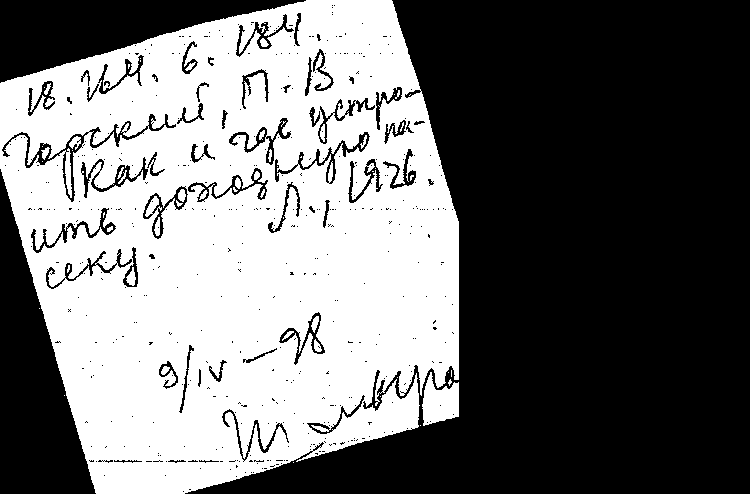 18. 164. 6. 184.
Горский, П. В.
Как и где устро-
ить доходную па-
секу. Л., 1926.
9/IV — 98